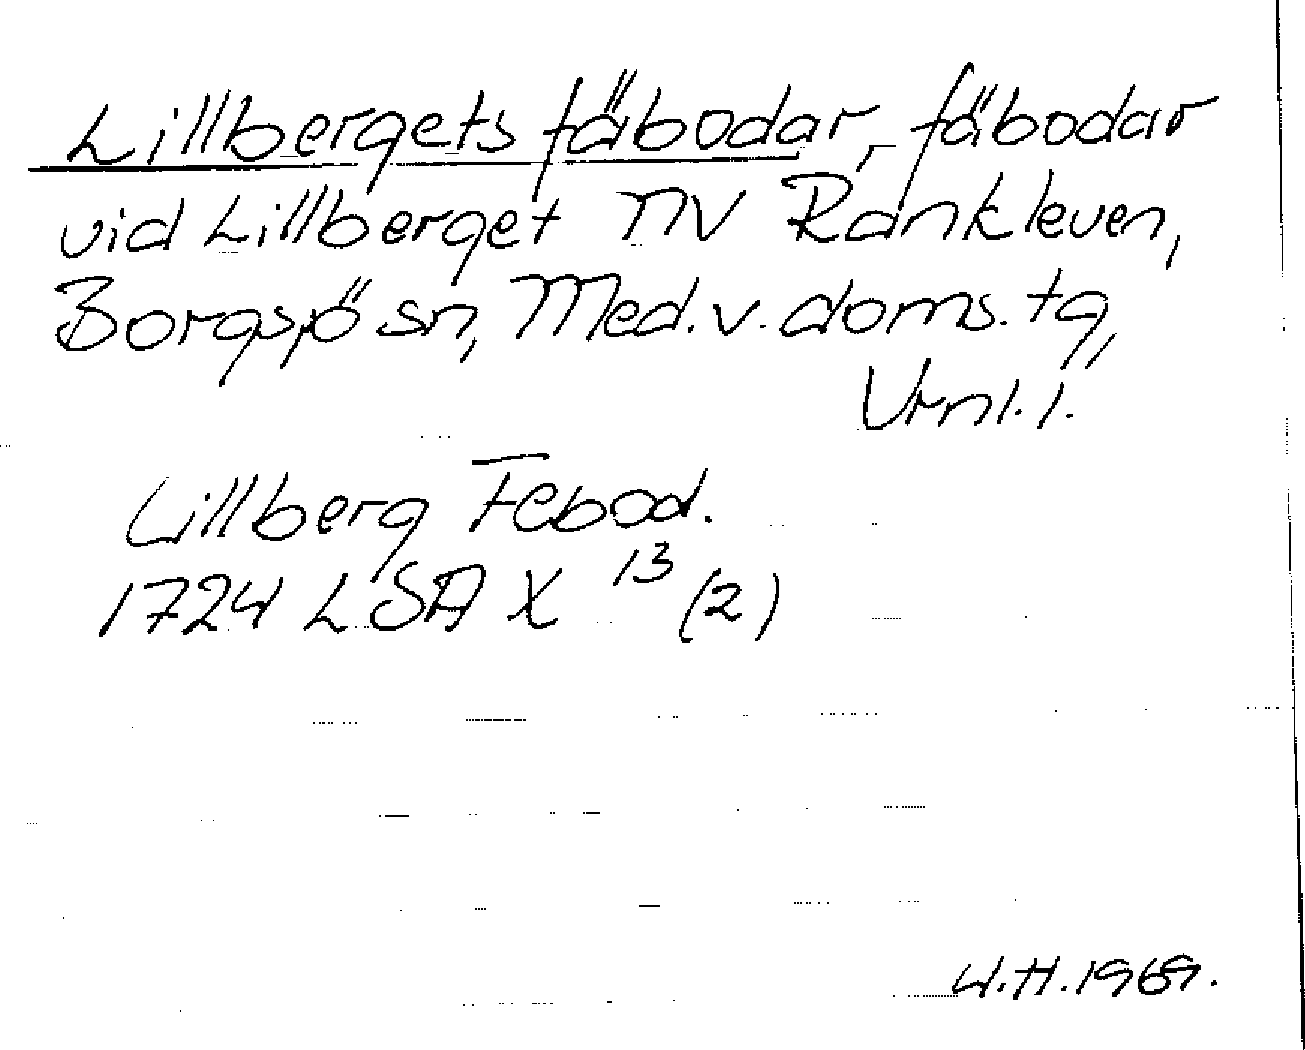 Lillbergets fäbodar, fäbodar
vid Lillberget NV Rankleven,
Borgsjö sn, Med.v.doms.tg,
Vrnl.l.
Lillberg Febod.
1724 LSA X 13 (2)
W.H.1969.